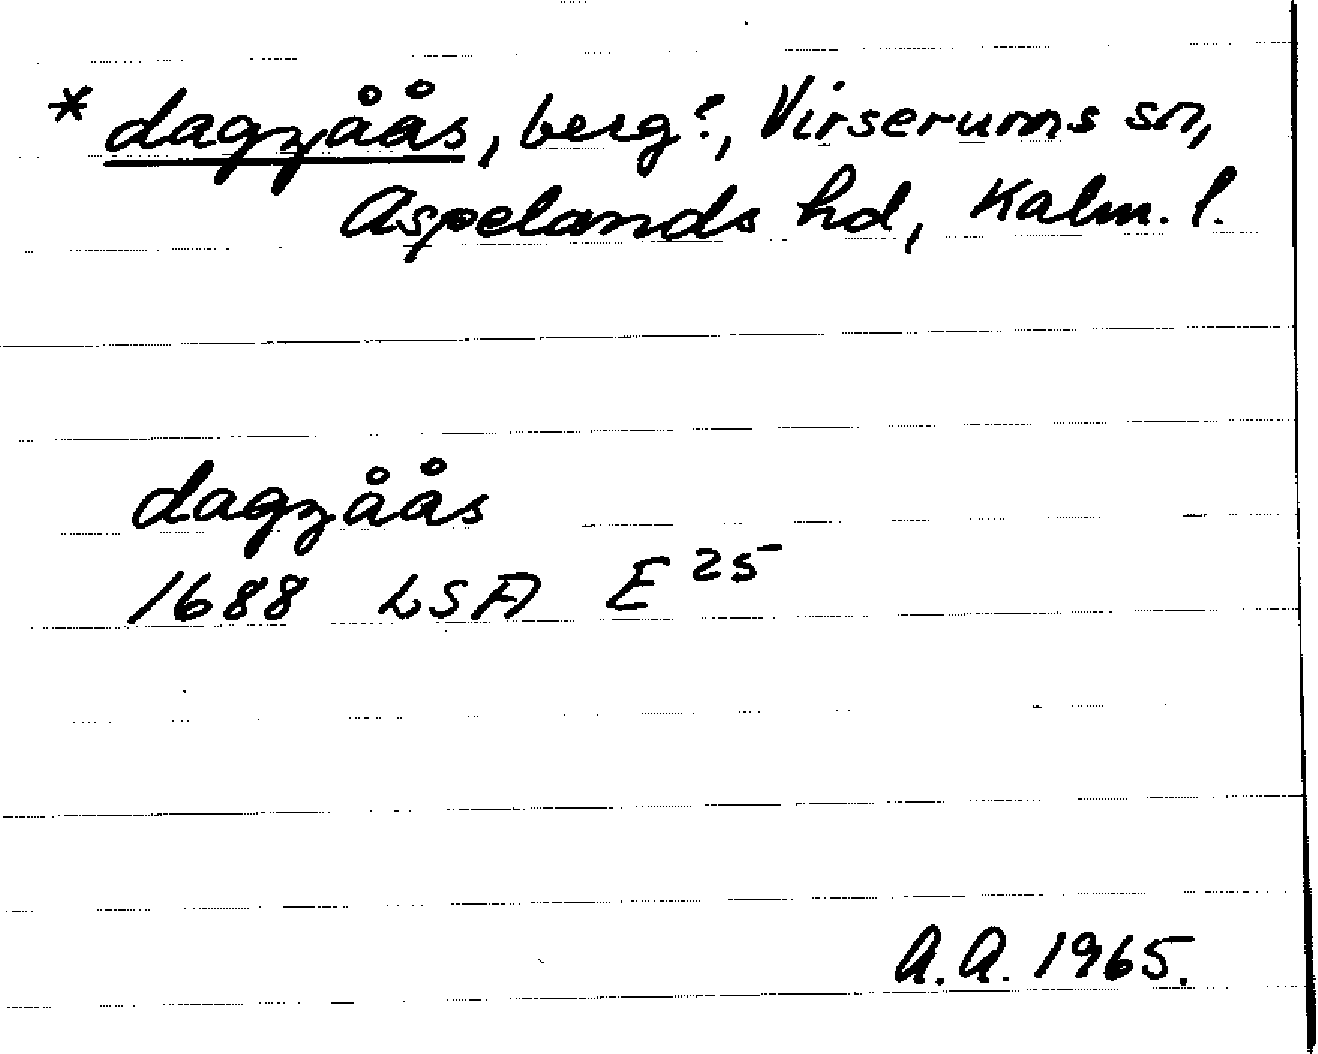 * dagzåås, berg?, Virserums sn,
Aspelands hd, Kalm. l.
dagzåås
1688 LSA E 25
A.A. 1965.